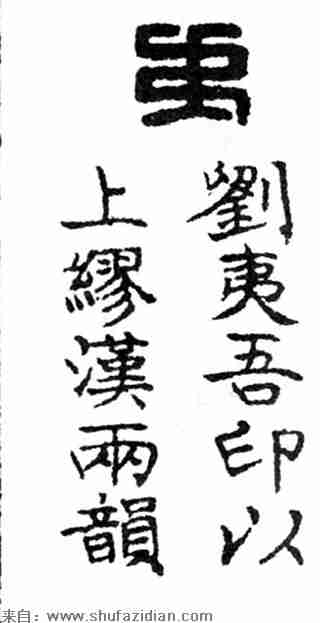 夷
劉夷吾印以
上繆漢兩韻
来自：www.shufazidian.com